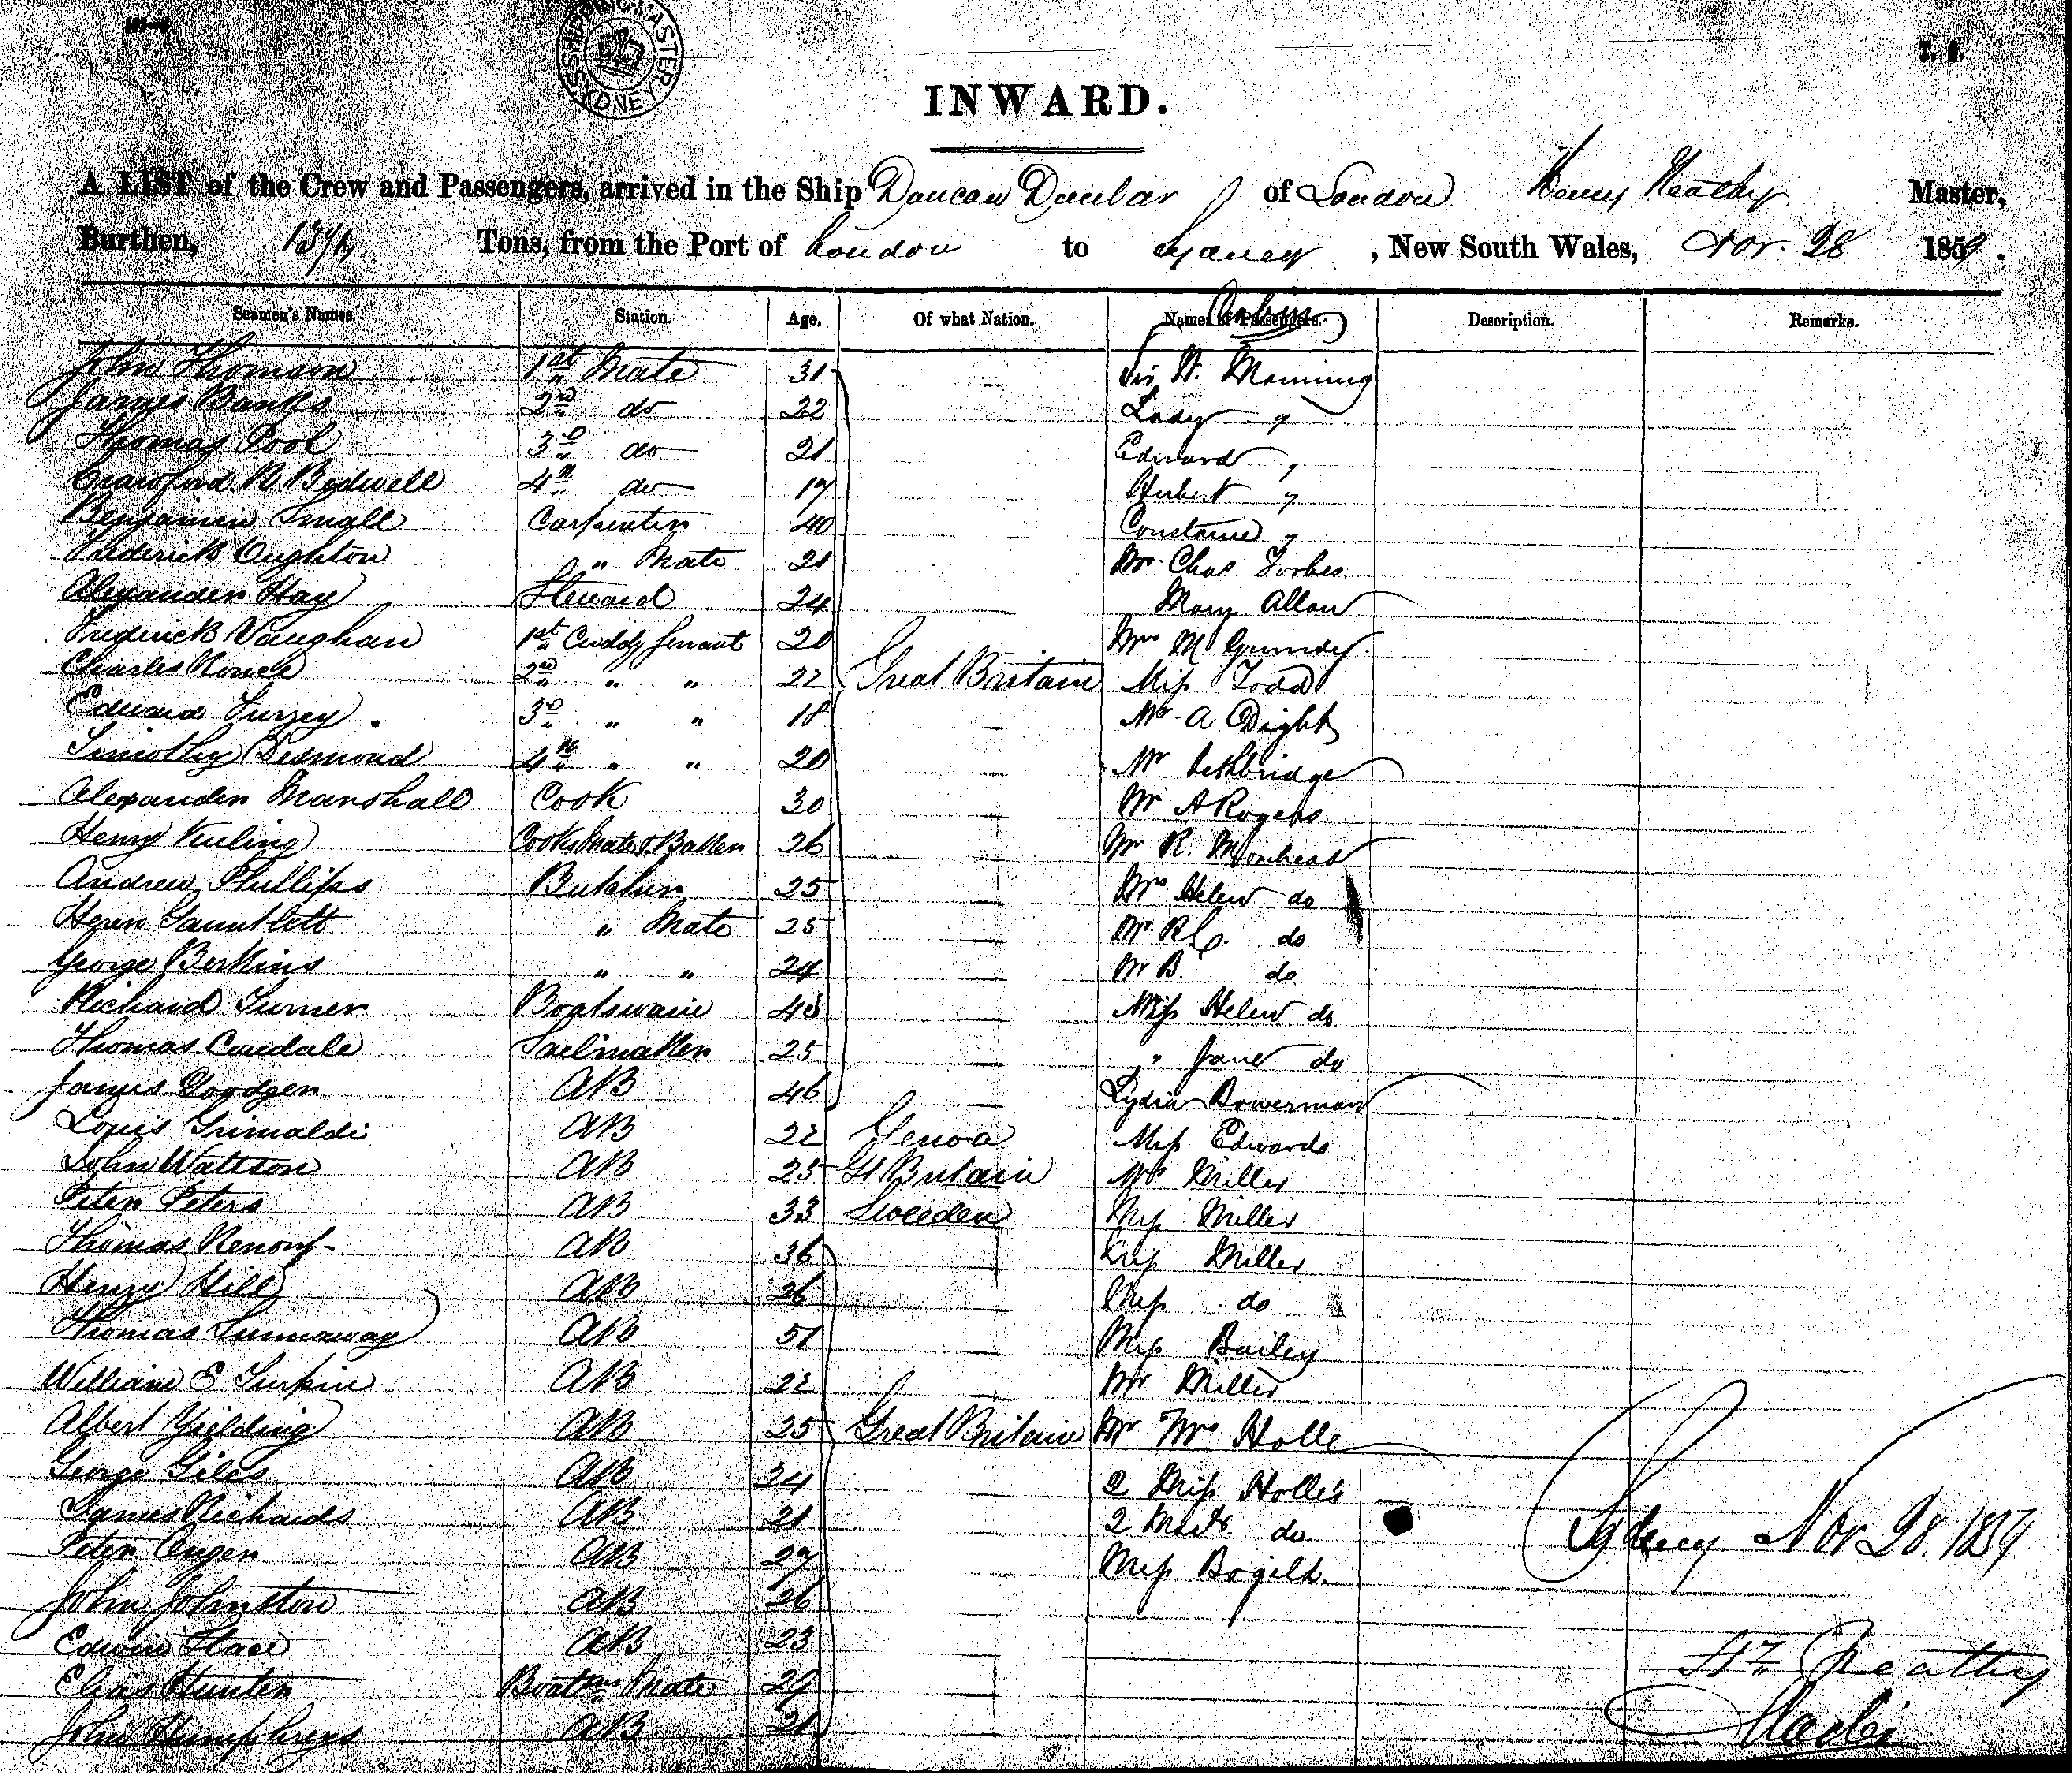 SHIPPING MASTER SYDNEY
INWARD.
A LIST of the Crew and Passengers, arrived in the Ship Duncan Dunbar of London Henry Neatby Master,
Burthen, Tons, from the Port of London to Sydney, New South Wales, Nov. 28 1859.
Seamen's Names. Station. Age. Of what Nation. Names of Passengers. Description. Remarks.
Cabin
John Thomson 1st Mate 31 Sir W. Manning
James Banks 2nd do 22 Lady "
Thomas Pool 3d do 21 Edward "
Crawford R Bodwell 4th do 17 Herbert "
Benjamin Small Carpenter 40 Constance "
Frederick Oughton " Mate 21 Mr Chas Forbes
Alexander Hay Steward 24 Mary Allan
Frederick Vaughan 1st Cuddy Servant 20 Mrs Mc
Charles 2nd " " 22 Great Britain Miss Todd
Edward Furzey 3d " " 18 Mr A Dight
Timothy Desmond 4th " " 20 Mr Lethbridge
Alexander Marshall Cook 30 Mr A Rogers
Henry Cooks Mate & Baker 26 Mr R. Morehead
Andrew Phillips Butcher 25 Mrs Helen do
Gauntlett " Mate 25 Mr R C. do
George Berkins " " 24 Mr B. do
Richard Turner Boatswain 43 Miss Helen do
Thomas Sailmaker 25 " Jane do
James AB 46 Lydia Bowerman
Louis Grimaldi AB 22 Genoa Miss Edwards
John Wattson AB 25 Gt Britain Mrs Miller
Peter Peters AB 33 Sweeden Miss Miller
Thomas Renouf AB 36 Miss Miller
Henry Hill AB 26 Miss do
Thomas AB 51 Miss Bailey
William E Turpin AB 22 Mr Miller
Albert Yielding AB 25 Great Britain Mr Mrs Holle
George Giles AB 24 2 Miss Holles
James Richards AB 21 2 Mastr do
Peter AB 27 Miss
John Johnston AB 26
Edwin AB 23
Elias Hunter Boatsns Mate 29
John Humphreys AB 21
Sydney Nov 28. 1859
Hy Neatby
Master